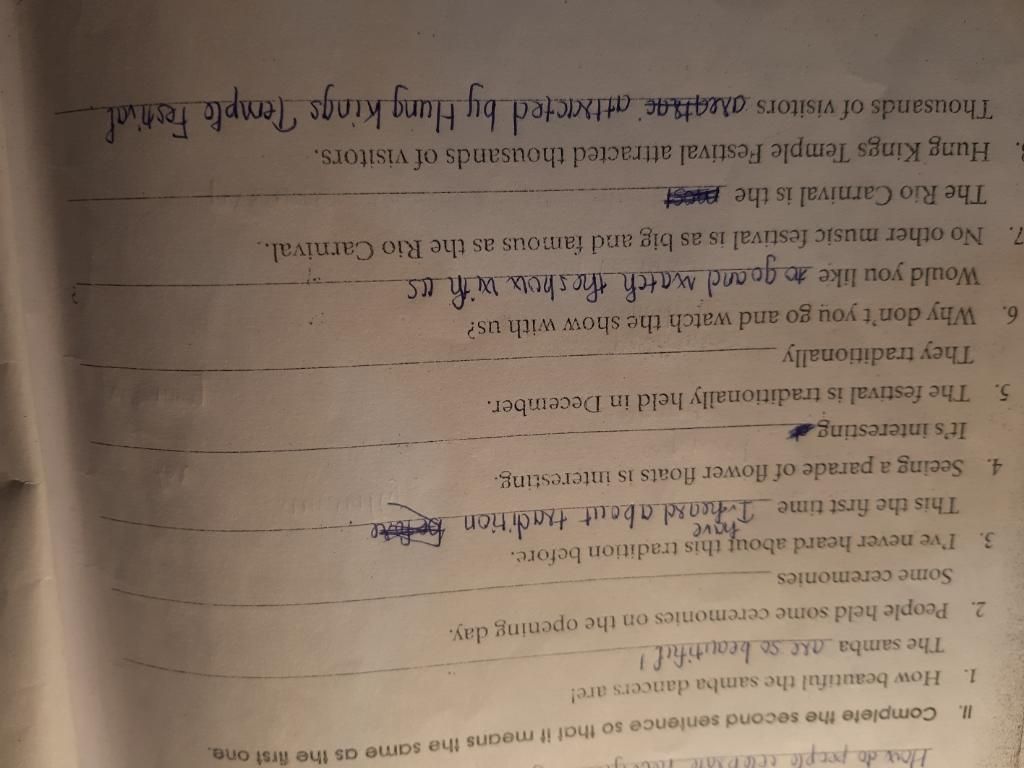 How do people celebrate
II. Complete the second sentence so that it means the same as the first one.
1. How beautiful the samba dancers are!
The samba are so beautiful!
2. People held some ceremonies on the opening day.
Some ceremonies
3. I've never heard about this tradition before.
This the first time I have heard about tradition before
4. Seeing a parade of flower floats is interesting.
It's interesting
5. The festival is traditionally held in December.
They traditionally
6. Why don't you go and watch the show with us?
Would you like to go and watch the show with us ?
7. No other music festival is as big and famous as the Rio Carnival.
The Rio Carnival is the most
8. Hung Kings Temple Festival attracted thousands of visitors.
Thousands of visitors attracted by Hung Kings Temple Festival.